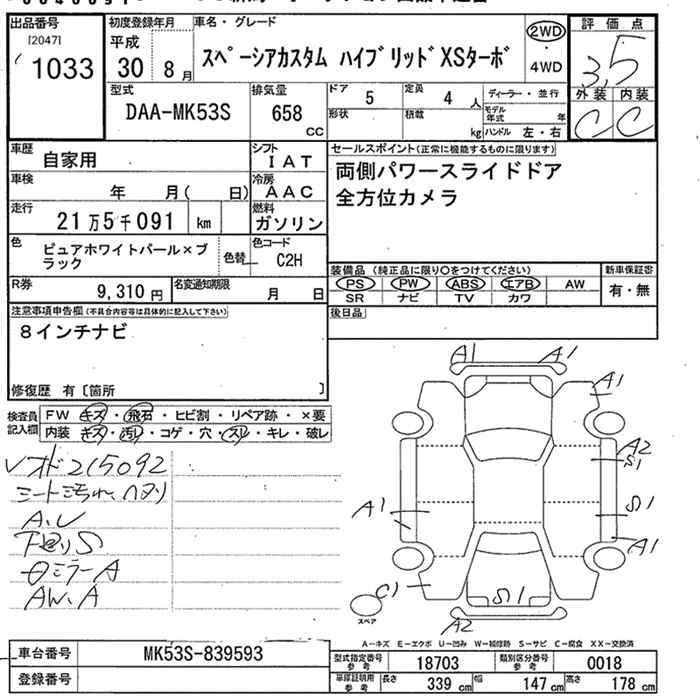 出品番号
[2047]
1033
初度登録年月
平成
30 8月
車名・グレード
スペーシアカスタム ハイブリッドXSターボ
2WD
・
4WD
評価点
3.5
外装 内装
C C
型式
DAA-MK53S
排気量
658
cc
ドア
5
定員
4 人
形状
積載
kg
ディーラー・並行
モデル年式 年
ハンドル 左・右
車歴
自家用
シフト
IAT
車検
年 月( 日)
冷房
AAC
走行
21万5千091 km
燃料
ガソリン
色
ピュアホワイトパール×ブラック
色替
色コード
C2H
R券
9,310円
名変通知期限
月 日
セールスポイント(正常に機能するものに限ります)
両側パワースライドドア
全方位カメラ
装備品 (純正品に限り○をつけてください)
PS PW ABS エアB AW
SR ナビ TV カワ
新車保証書
有・無
後日品
注意事項申告欄(不具合内容等は具体的に記入して下さい)
8インチナビ
修復歴 有〔箇所 〕
検査員記入欄
FW キズ・飛石・ヒビ割・リペア跡・×要
内装 キズ・汚レ・コゲ・穴・スレ・キレ・破レ
オド215092
シート汚れ、ヘタリ
A.U
下回りS
ミラーA
AW、A
A1 A1
A1
A2
S1
A1 S1
A1
C1 S1
スペア
A2
A-キズ E-エクボ U-凹み W-補修跡 S-サビ C-腐食 XX-交換済
車台番号 MK53S-839593
登録番号
型式指定番号参考 18703 類別区分番号参考 0018
車庫証明用参考 339cm 幅 147cm 高さ 178cm